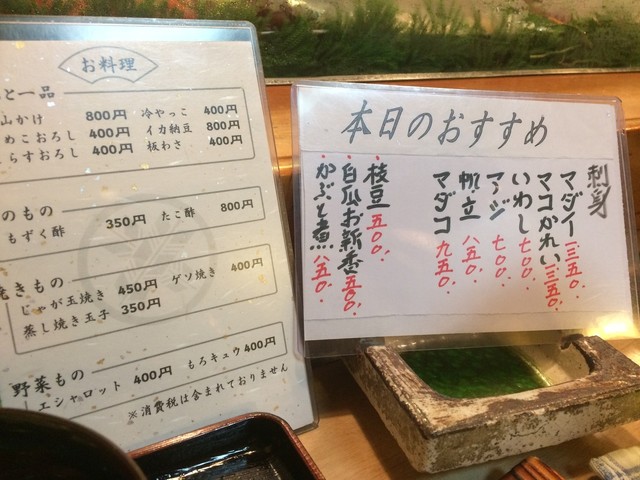 お料理
と一品
山かけ 800円 冷やっこ 400円
めこおろし 400円 イカ納豆 800円
らすおろし 400円 板わさ 400円
のもの
もずく酢 350円 たこ酢 800円
焼きもの
じゃが玉焼き 450円 ゲソ焼き 400円
蒸し焼き玉子 350円
野菜もの
エシャロット 400円 もろキュウ 400円
※消費税は含まれておりません
本日のおすすめ
刺身
マダイ 一三五〇.
マコかれい 一三五〇.
いわし 七〇〇.
アジ 七〇〇.
帆立 八五〇.
マダコ 九五〇.
枝豆 五〇〇.
白瓜お新香 五五〇.
かぶと煮 八五〇.